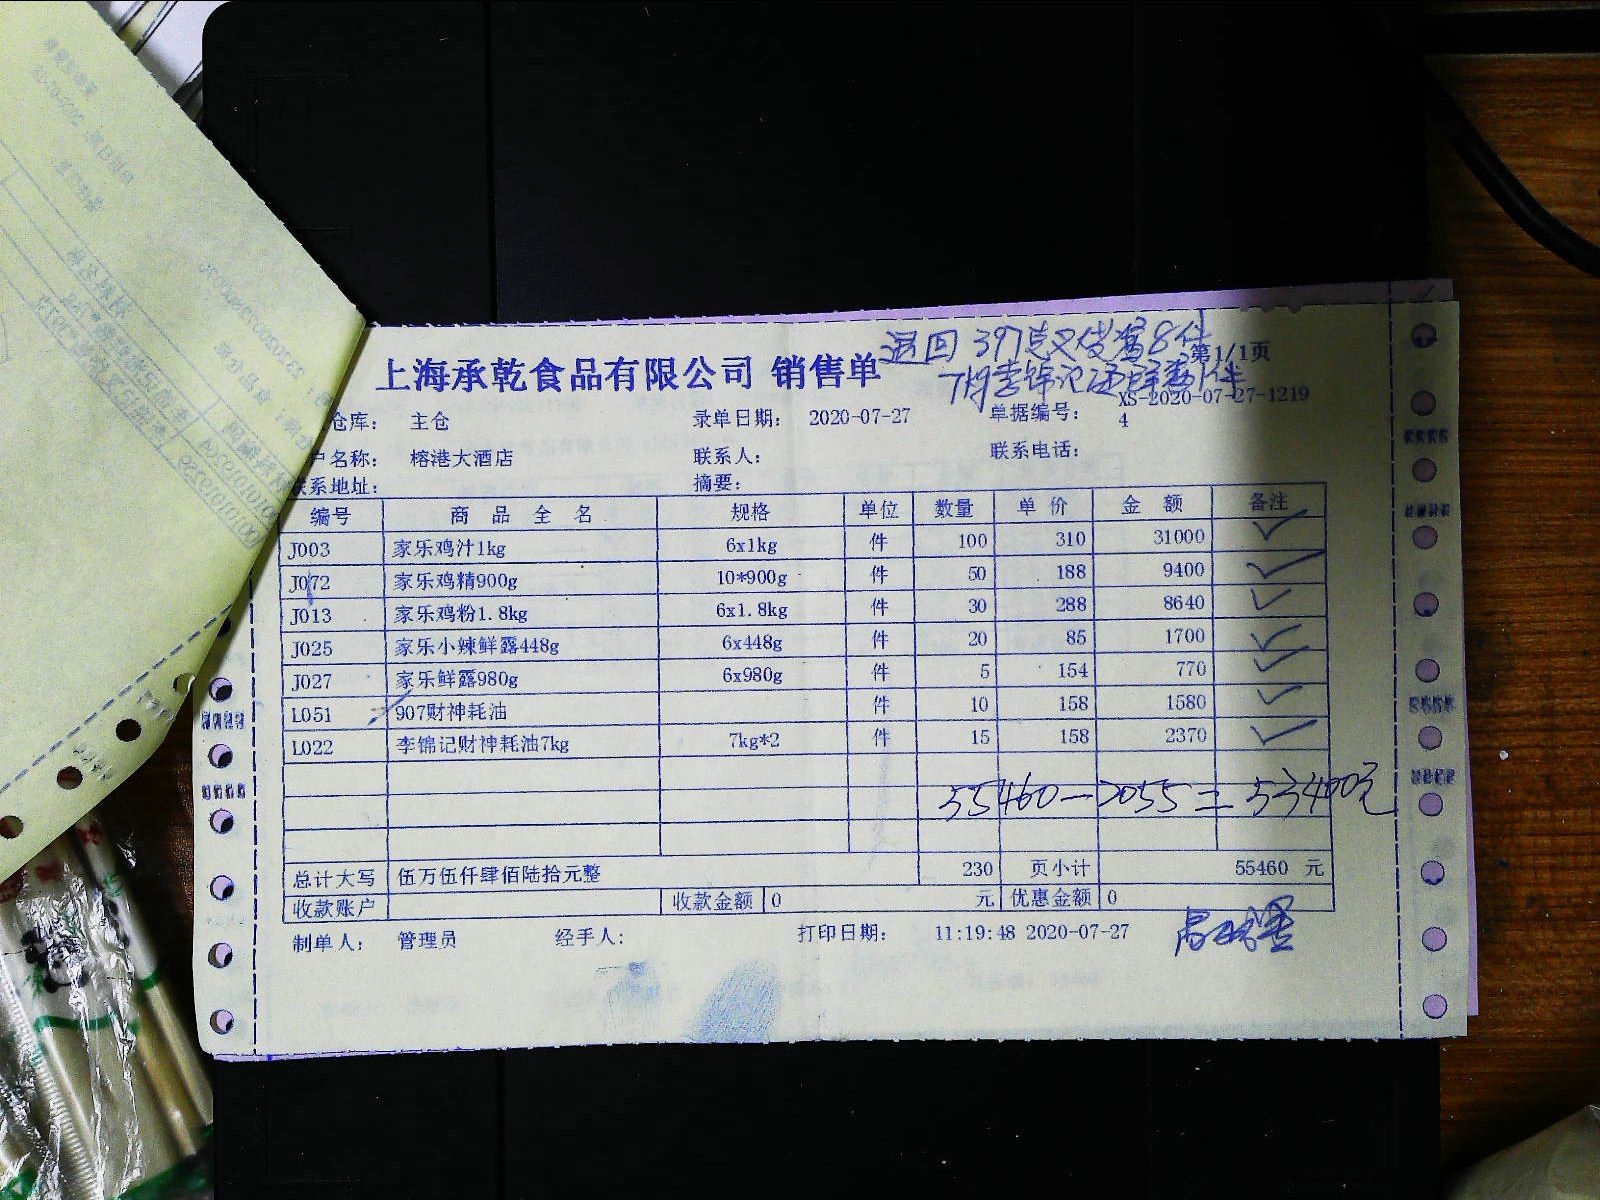 退回397克叉烧酱8件
第1/1页
上海承乾食品有限公司 销售单
XS-2020-07-27-1219
4
仓库： 主仓 录单日期： 2020-07-27 单据编号：
户名称： 榕港大酒店 联系人： 联系电话：
联系地址： 摘要：
编号 商 品 全 名 规格 单位 数量 单 价 金 额 备注
J003 家乐鸡汁1kg 6x1kg 件 100 310 31000 ✓
J072 家乐鸡精900g 10*900g 件 50 188 9400 ✓
J013 家乐鸡粉1.8kg 6x1.8kg 件 30 288 8640 ✓
J025 家乐小辣鲜露448g 6x448g 件 20 85 1700 ✓
J027 家乐鲜露980g 6x980g 件 5 154 770 ✓
L051 907财神耗油 件 10 158 1580 ✓
L022 李锦记财神耗油7kg 7kg*2 件 15 158 2370 ✓
55460-2055=53400元
总计大写 伍万伍仟肆佰陆拾元整 230 页小计 55460 元
收款账户 收款金额 0 元 优惠金额 0
制单人： 管理员 经手人： 打印日期： 11:19:48 2020-07-27